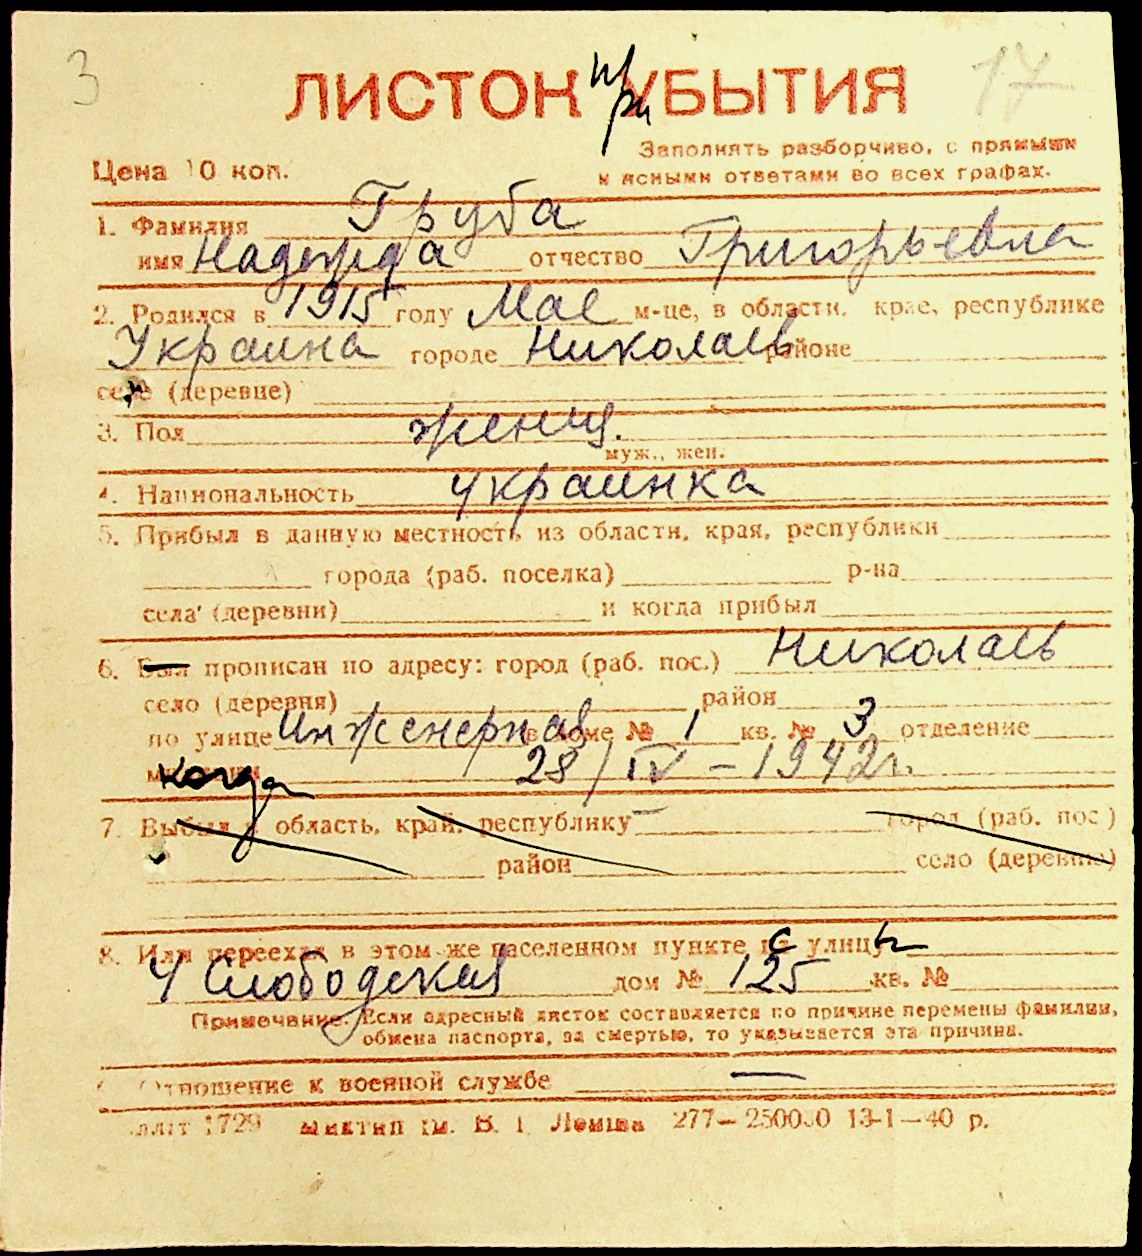 3
17
ЛИСТОК при УБЫТИЯ
Заполнять разборчиво, с прямыми
и ясными ответами во всех графах.
Цена 10 коп.
1. Фамилия Груба
имя Надежда отчество Григорьевна
2. Родился в 1915 году Мае м-це, в области, крае, республике
Украина городе Николаев районе
селе (деревне)
3. Пол женщ.
муж., жен.
4. Национальность украинка
5. Прибыл в данную местность из области, края, республики
города (раб. поселка) р-на
села (деревни) и когда прибыл
6. Был прописан по адресу: город (раб. пос.) Николаев
село (деревня) район
по улице Инженерная в доме № 1 кв. № 3 отделение
когда 28/IV – 1942г.
7. Выбыл в область, край, республику город (раб. пос.)
район село (деревню)
8. Или переехал в этом же населенном пункте с улицы
4 Слободская дом № 125 кв. №
Примечание. Если адресный листок составляется по причине перемены фамилии,
обмена паспорта, за смертью, то указывается эта причина.
Отношение к военной службе —
1729 им. В. І. Леніна 277—25000 13-1—40 р.